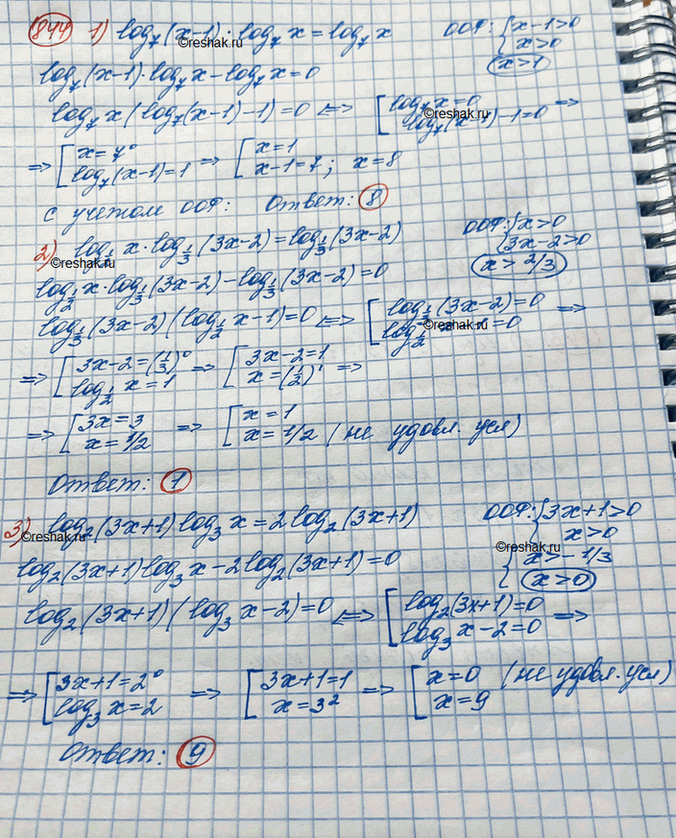 844 1) log₇(x-1)·log₇x = log₇x ООФ: { x-1>0
x>0
x>1
©reshak.ru
log₇(x-1)·log₇x - log₇x = 0
log₇x(log₇(x-1)-1) = 0 <=> [ log₇x = 0 =>
log₇(x-1)-1=0
=> [ x = 7⁰ => [ x = 1
log₇(x-1) = 1 x-1 = 7; x = 8
с учетом ООФ: Ответ: 8
2) log½ x·log⅓(3x-2) = log⅓(3x-2) ООФ: { x>0
3x-2>0
x > 2/3
©reshak.ru
log½ x·log⅓(3x-2) - log⅓(3x-2) = 0
log⅓(3x-2)(log½ x - 1) = 0 <=> [ log⅓(3x-2) = 0 =>
log½ x - 1 = 0
©reshak.ru
=> [ 3x-2 = (⅓)⁰ => [ 3x-2 = 1
log½ x = 1 x = (½)¹ =>
=> [ 3x = 3 => [ x = 1
x = 1/2 x = 1/2 (не удовл. усл)
Ответ: 1
3) log₂(3x+1) log₃x = 2log₂(3x+1) ООФ: { 3x+1>0
x>0
©reshak.ru
©reshak.ru
{ x > -1/3
x>0
log₂(3x+1) log₃x - 2log₂(3x+1) = 0
log₂(3x+1)(log₃x - 2) = 0 <=> [ log₂(3x+1) = 0 =>
log₃x - 2 = 0
=> [ 3x+1 = 2⁰ => [ 3x+1 = 1 => [ x = 0 (не удовл. усл)
log₃x = 2 x = 3² x = 9
Ответ: 9